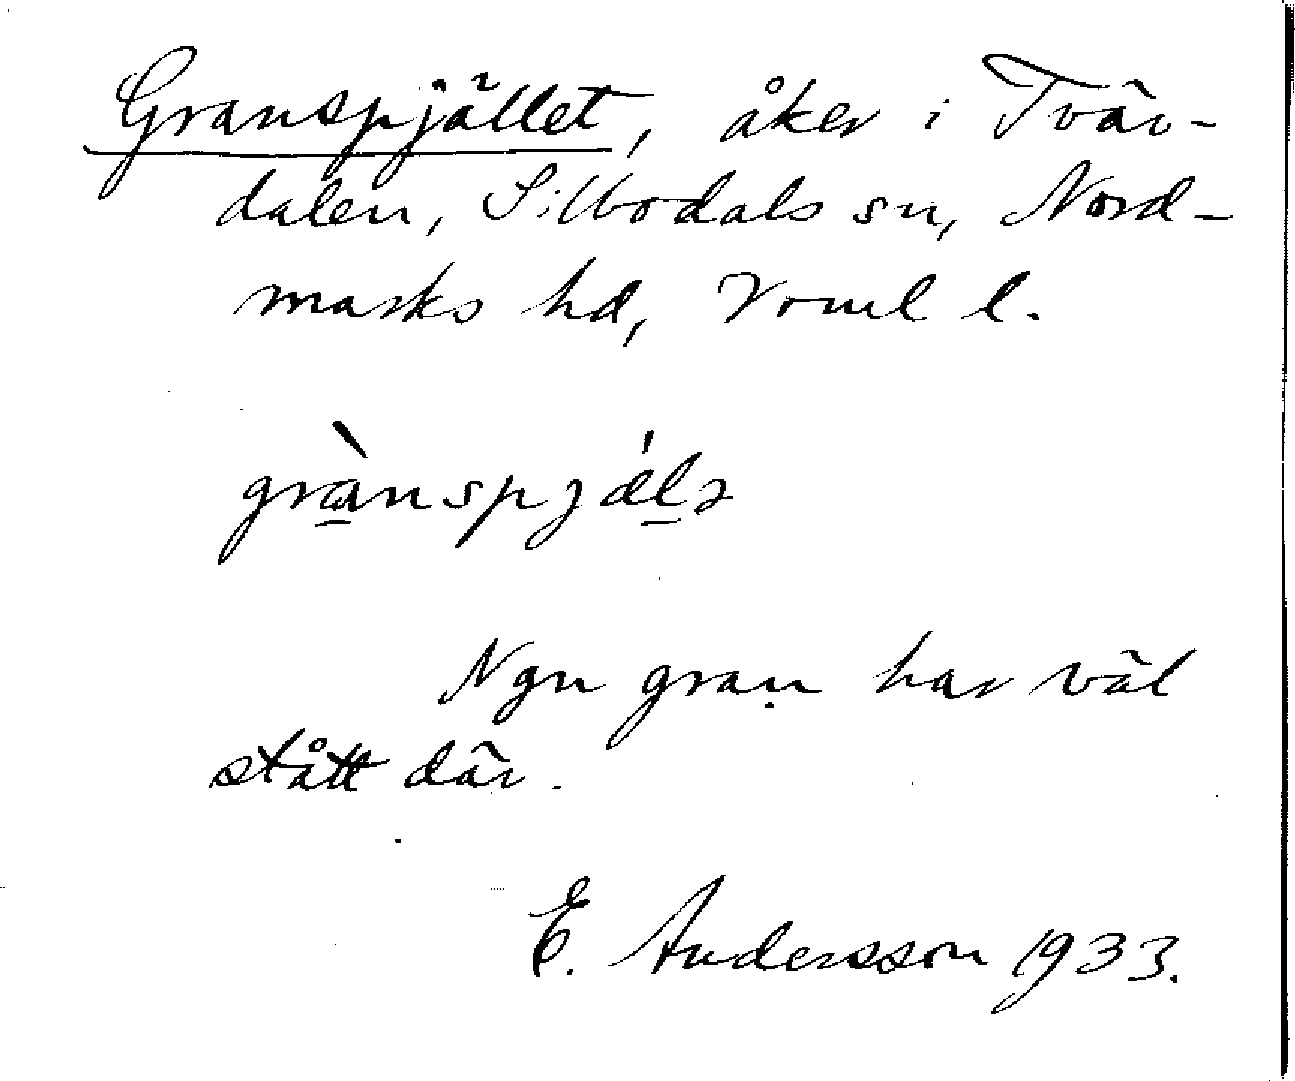 Granspjället, åker i Tvär-
dalen, Silbodals sn, Nord-
marks hd, Värml l.
grànspjǽlə
Ngn gran har väl
stått där.
E. Andersson 1933.